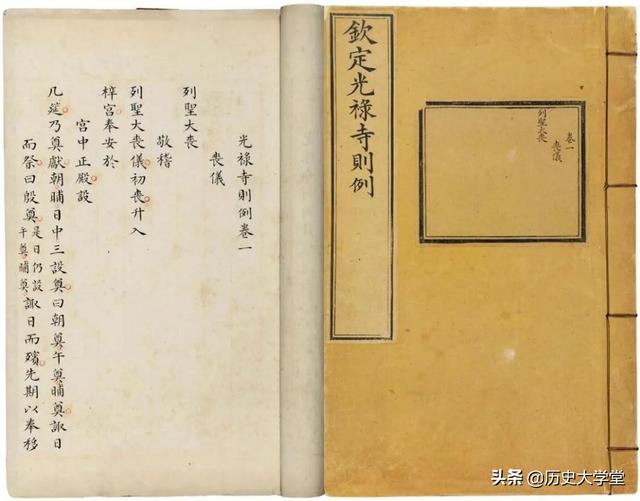 欽定光祿寺則例
卷一
喪儀
列聖大喪
光祿寺則例卷一
喪儀
列聖大喪
敬稽
列聖大喪儀初喪升入
梓宮奉安於
宮中正殿設
几筵乃奠獻朝晡日中三設奠曰朝奠午奠晡奠諏日
而祭曰殷奠是日仍設午奠晡奠諏日而殯先期以奉移
头条 @历史大学堂